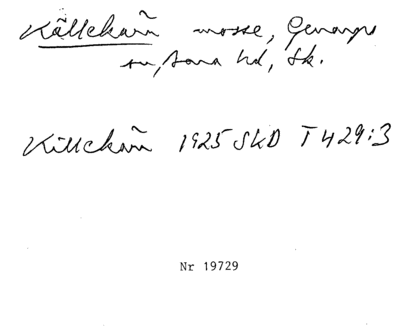 Källekärr mosse, Genarps
sn, Bara hd, Sk.
Killekärr 1925 SkD T 429:3
Nr 19729